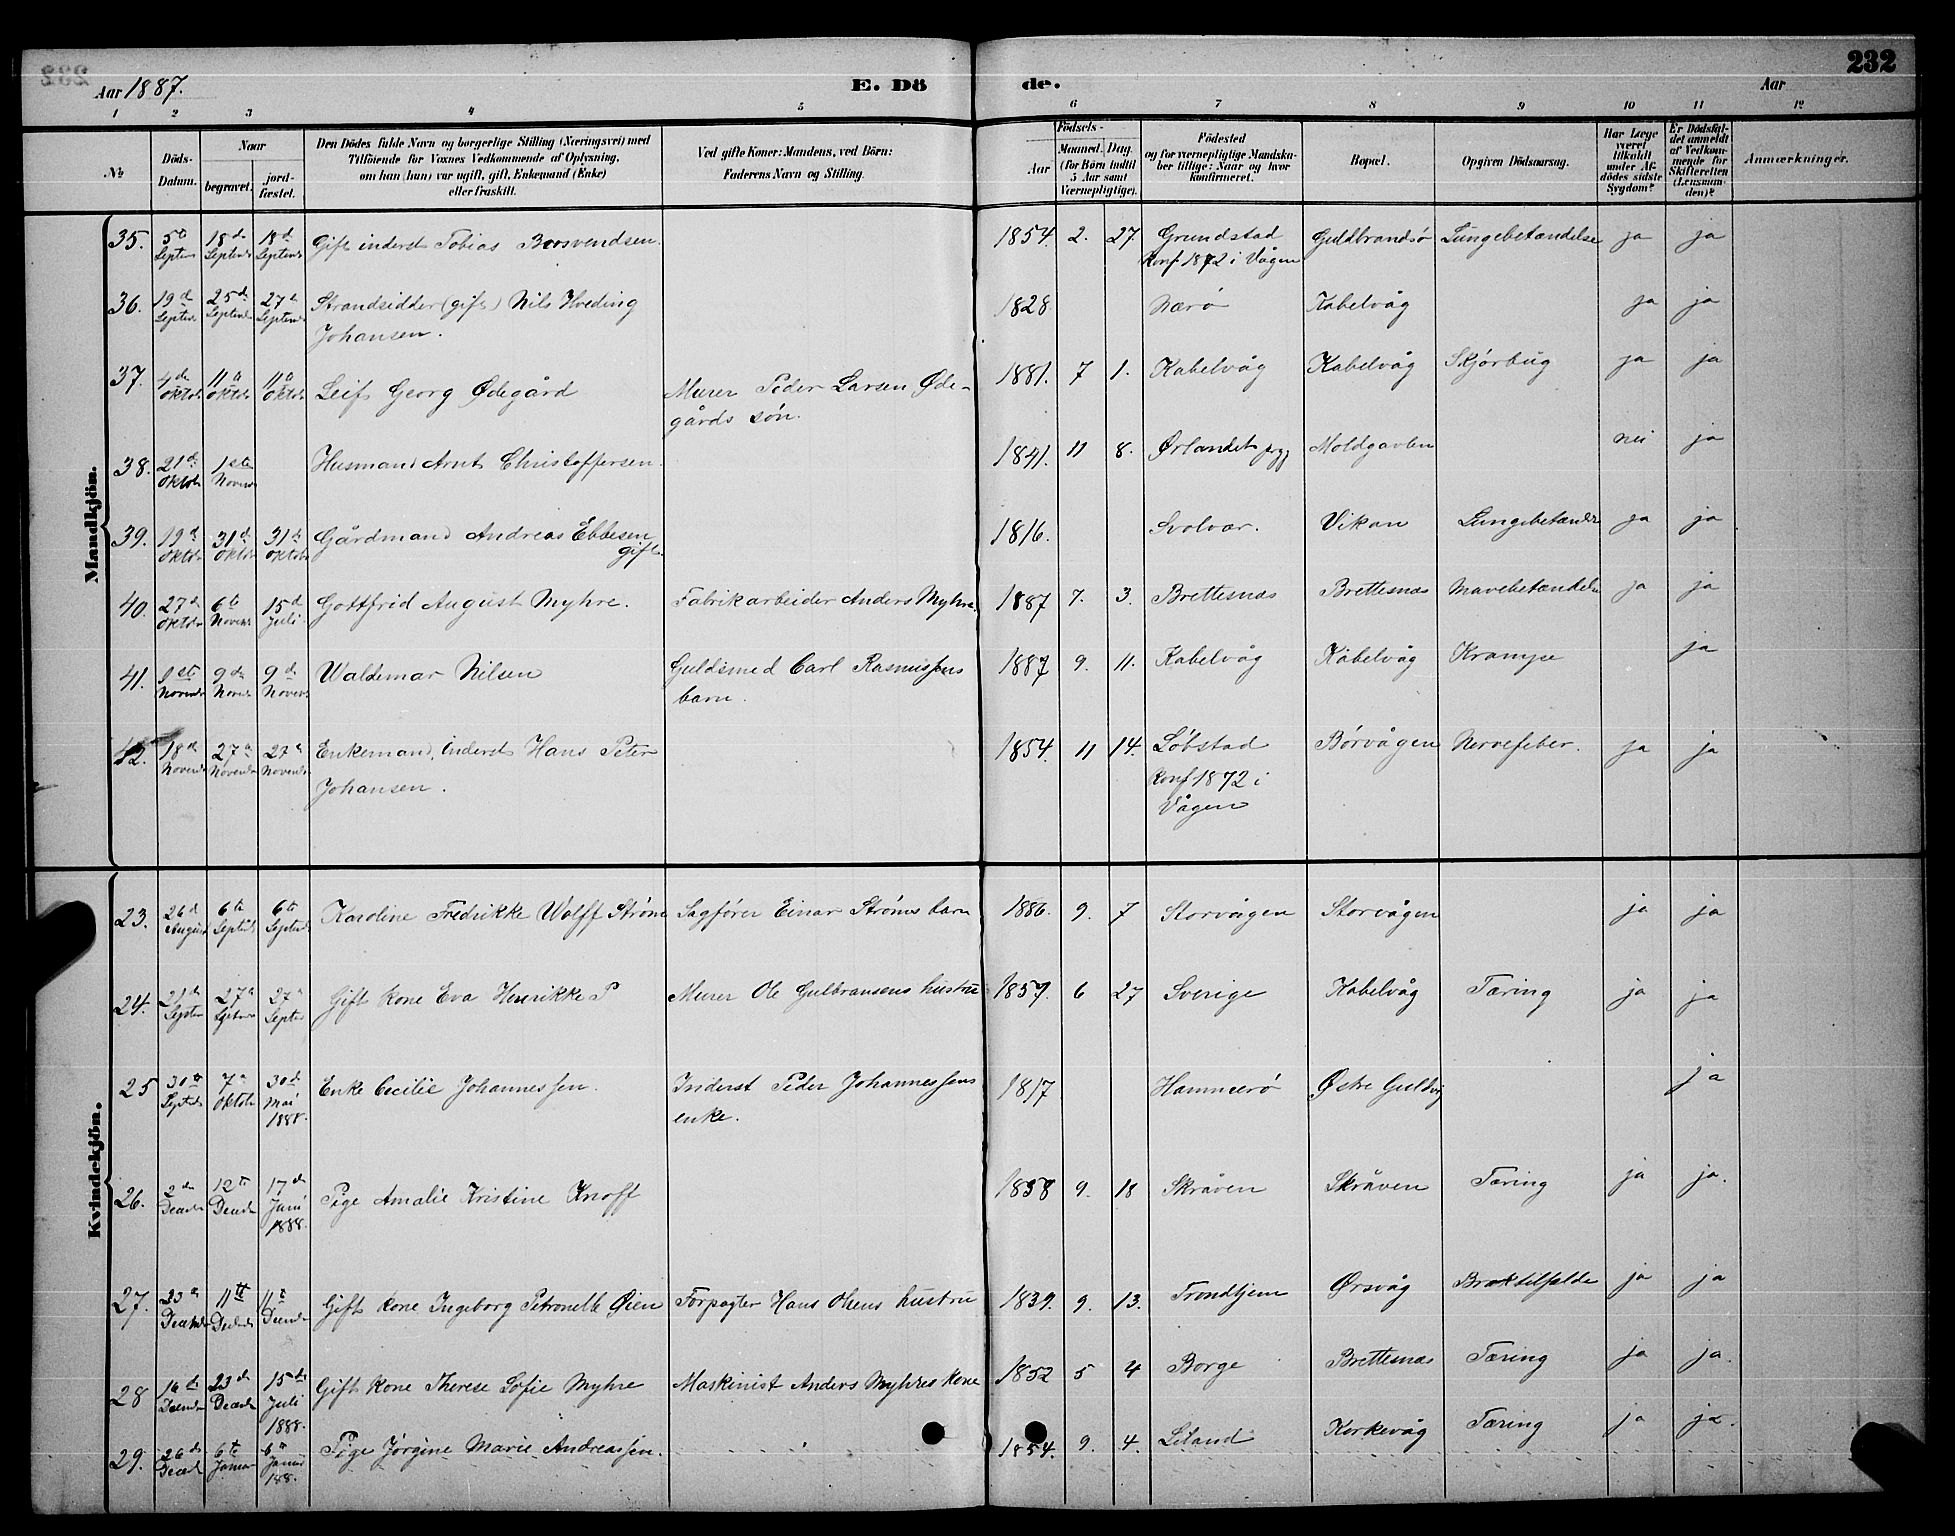 232
Aar 1887. E. Dö de. Aar
1 2 3 4 5 6 7 8 9 10 11 12
No Döds-Datum. Naar begravet. jord-fæstet. Den Dödes fulde Navn og borgerlige Stilling (Næringsvei) med Tilföiende for Voxnes Vedkommende af Oplysning, om han (hun) var ugift, gift, Enkemand (Enke) eller fraskilt. Ved gifte Koner: Mandens, ved Börn: Faderens Navn og Stilling. Födsels- Aar Maaned. Dag. (for Börn indtil 5 Aar samt Værnepligtige). Födested og for værnepligtige Mandskaber tillige: Naar og hvor konfirmeret. Bopæl. Opgiven Dödsaarsag. Har Læge været tilkaldt under Afdödes sidste Sygdom? Er Dödsfaldet anmeldt af Vedkommende for Skifteretten (Lensmanden)? Anmærkninger.
Mandkjön.
35. 5te Septem 18de Septemb 18de Septemb Gift inderst Tobias Brosvendsen. 1854 2. 27. Grundstad Guldbrandsø Lungebetændelse ja ja
Konf 1872 i Vågen
36. 19de Septem 25de Septemb 27de Septemb Strandsidder (gift) Nils Hveding 1828 Nærö Kabelvåg ja ja
Johansen.
37. 4de Oktob 11te Oktob 11te Oktob Leif Georg Ødegård Murer Peder Larsen Øde- 1881. 7 1. Kabelvåg Kabelvåg Skjørbug ja ja
gårds søn.
38. 21de Oktob 1ste Novem Husmand Arnt Christoffersen. 1841. 11 8. Ørlandet prgj Moldgavlen nei ja
39. 19de Oktob 31de Oktob 31te Oktob Gårdmand Andreas Ebbesen 1816. Svolvær. Vikan Lungebetændel ja ja
gift
40. 27de Oktob 6te Novem 15de Juli Gottfrid August Myhre. Fabrikarbeider Anders Myhre 1887 7. 3. Brettesnæs Brettesnæs Mavebetændelse ja ja
41. 1ste Novem 9de Novem 9de Novem Waldemar Nilsen Guldsmed Carl Rasmussens 1887 9. 11. Kabelvåg Kabelvåg Krampe ja
barn.
42. 18de Novem 27de Novem 27de Novem Enkemand, inderst Hans Peter 1854. 11 14. Løbstad Børvågen Nervefeber. ja ja
Johansen. Konf 1872 i
Vågen
Kvindekjön.
23. 26de August 6te Septemb 6te Septemb Karoline Fredrikke Wolff Strøm Sagfører Einar Strøms barn 1886. 9. 7 Storvågen Storvågen ja ja
24. 21de Septem 27de Septem 27de Septem Gift kone Eva Henrikke P Murer Ole Gulbransens hustru 1859. 6 27 Sverige Kabelvåg Tæring ja ja
25 30te Septemb 7de Oktob 30de Mai 1888. Enke Cecilie Johannessen. Inderst Peder Johannessens 1817 Hammerø Østre Guldvig ja
enke.
26. 2de Decemb 12te Decemb 17de Juni 1888. Pige Amalie Kristine Knoff 1858 9. 18 Skråven Skråven Tæring ja ja.
27. 23de Decemb 11te Decemb 11te Decemb Gift kone Ingeborg Petronelle Øien Forpagter Hans Øiens hustru 1839. 9. 13. Trondhjem Ørsvåg Braktilfælde ja ja
28 16de Decemb 23de Decemb 15de Juli 1888. Gift kone Therese Sofie Myhre Maskinist Anders Myhres kone 1852 5 4 Borge Brettesnæs Tæring ja ja.
29. 26de Decemb 6te Januar 6te Januar 188. Pige Jørgine Marie Andreassen. 1854. 9. 4. Liland Korkevåg Tæring ja ja.